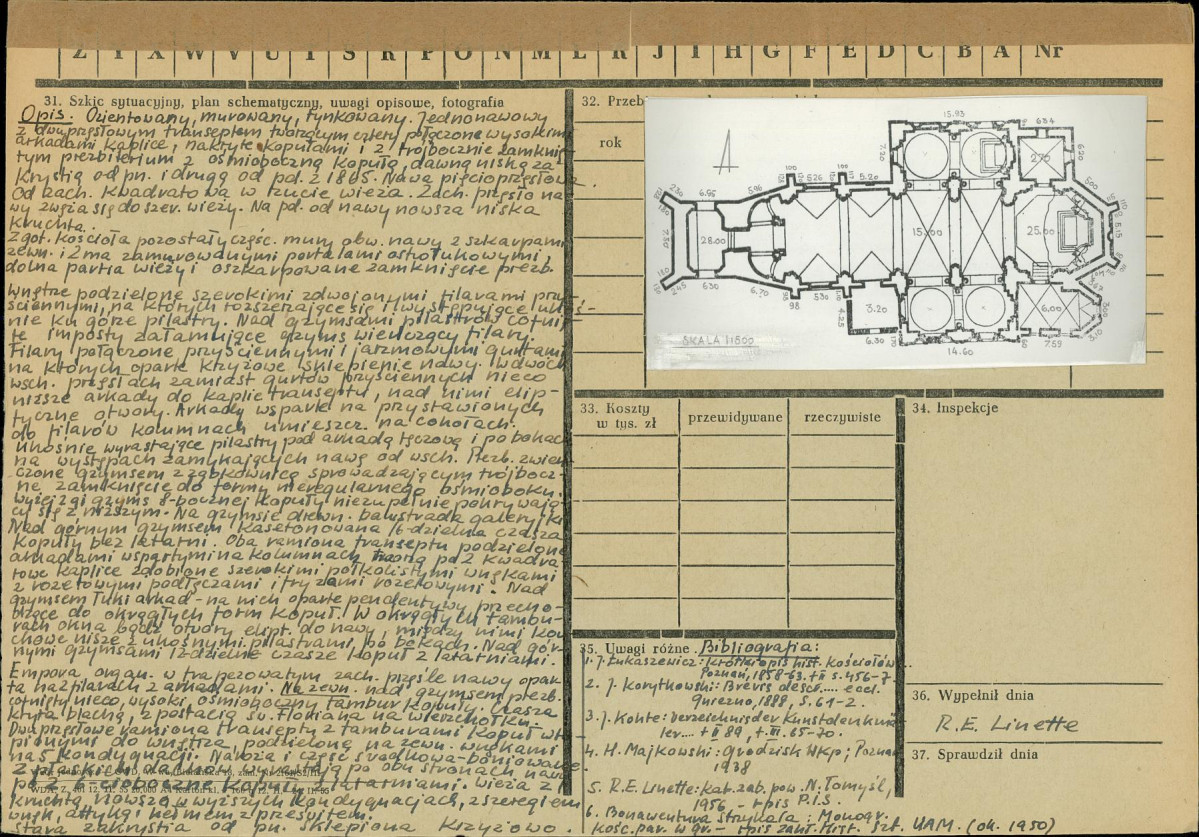 Z Y X W V U T S R P O N M L K J I H G F E D C B A Nr
31. Szkic sytuacyjny, plan schematyczny, uwagi opisowe, fotografia
Opis. Orientowany, murowany, tynkowany. Jednonawowy
z dwuprzęsłowym transeptem tworzącym cztery połączone wysokimi
arkadami kaplice, nakryte kopułami i z trójbocznie zamknię-
tym prezbiterium z ośmioboczną kopułą, dawną niską za-
krystią od pn. i drugą od pd. z 1805. Nawa pięcioprzęsłowa.
Od zach. kwadratowa w rzucie wieża. Zach. przęsło na-
wy zwęża się do szer. wieży. Na pd. od nawy nowsza niska
kruchta.
Z got. kościoła pozostały częśc. mury obw. nawy z szkarpami
zewn. i 2ma zamurowanymi portalami ostrołukowymi,
dolna partia wieży i oszkarpowane zamknięcie prezb.
Wnętrze podzielone szerokimi zdwojonymi filarami przy-
ściennymi, na których rozszerzające się i występujące ukoś-
nie ku górze pilastry. Nad gzymsami pilastrów cofnię-
te imposty załamujące gzyms wieńczący filary.
Filary połączone przyściennymi i jarzmowymi gurtami
na których oparte krzyżowe sklepienie nawy. W dwóch
wsch. przęsłach zamiast gurtów przyściennych nieco
niższe arkady do kaplic transeptu, nad nimi elip-
tyczne otwory. Arkady wsparte na przystawionych
do filarów kolumnach umieszcz. na cokołach.
Ukośnie wyrastające pilastry pod arkadą tęczową i po bokach
na występach zamykających nawę od wsch. Prezb. zwień-
czone gzymsem z ząbkownicą sprowadzającym trójbocz-
ne zamknięcie do formy nieregularnego ośmioboku.
Wyżej zaś gzyms 8-bocznej kopuły niezupełnie pokrywają-
cy się z niższym. Na gzymsie drewn. balustrada galeryjki
Nad górnym gzymsem kasetonowana 16-dzielna czasza
kopuły bez latarni. Oba ramiona transeptu podzielone
arkadami wspartymi na kolumnach tworzą po 2 kwadra-
towe kaplice zdobione szerokimi półkolistymi wnękami
z rozetowymi podłęczami i fryzami rozetowymi. Nad
gzymsem łuki arkad - na nich oparte pendentywy przecho-
dzące do okrągłych form kopuł. W okrągłych tambu-
rach okna bądź otwory elipt. do nawy, między nimi kon-
chowe nisze z ukośnymi pilastrami po bokach. Nad gór-
nymi gzymsami 12-dzielne czasze kopuł z latarniami.
Empora organ. w trapezowatym zach. przęśle nawy opar-
ta na 2 filarach z arkadami. Na zewn. nad gzymsem prezb.
cofnięty nieco, wysoki, ośmioboczny tambur kopuły. Czasza
kryta blachą, z postacią św. Floriana na wierzchołku.
Dwuprzęsłowe ramiona transeptu z tamburami kopuł wto-
pionymi do wnętrza, podzielone na zewn. wnękami
na 5 kondygnacji. Naroża i część środkowa boniowane
z pząskie dachami wyrastają po obu stronach nawy
po 2 ośmioboczne kopuły z latarniami. Wieża z
kruchtą nowsza w wyższych kondygnacjach, z szeregiem
wnęk, attyką i hełmem z prześwitem.
Stara zakrystia od pn. sklepiona krzyżowo.
32.
rok
SKALA 1:1500
15.93
7.20
634
2.70
6.20
100
526
5.20
230
6.95
5.96
7.50
28.00
15.00
25.00
5.15
245
630
6.70
98
530
4.25
3.20
6.30
6.00
7.59
14.60
33. Koszty w tys. zł
przewidywane
rzeczywiste
34. Inspekcje
35. Uwagi różne. Bibliografia:
1. J. Łukaszewicz: Krótki opis hist. kościołów
Poznań, 1858-63. t. II s. 456-7.
2. J. Korytkowski: Brevis descr.... eccl.
Gniezno, 1888, s. 61-2.
3. J. Kohte: Verzeichnis der Kunstdenkmä-
ler.... t. II 89, t. III. 65-70.
4. H. Majkowski: Grodzisk Wkp; Poznań
1938
5. R.E. Linette: Kat. zab. pow. N. Tomyśl,
1956 - rpis P.I.S.
6. Bonawentura Strykała: Monogr.
kośc. par. w Gr. - rpis zakł. Hist. Szt. UAM. (ok. 1950)
36. Wypełnił dnia
R.E. Linette
37. Sprawdził dnia